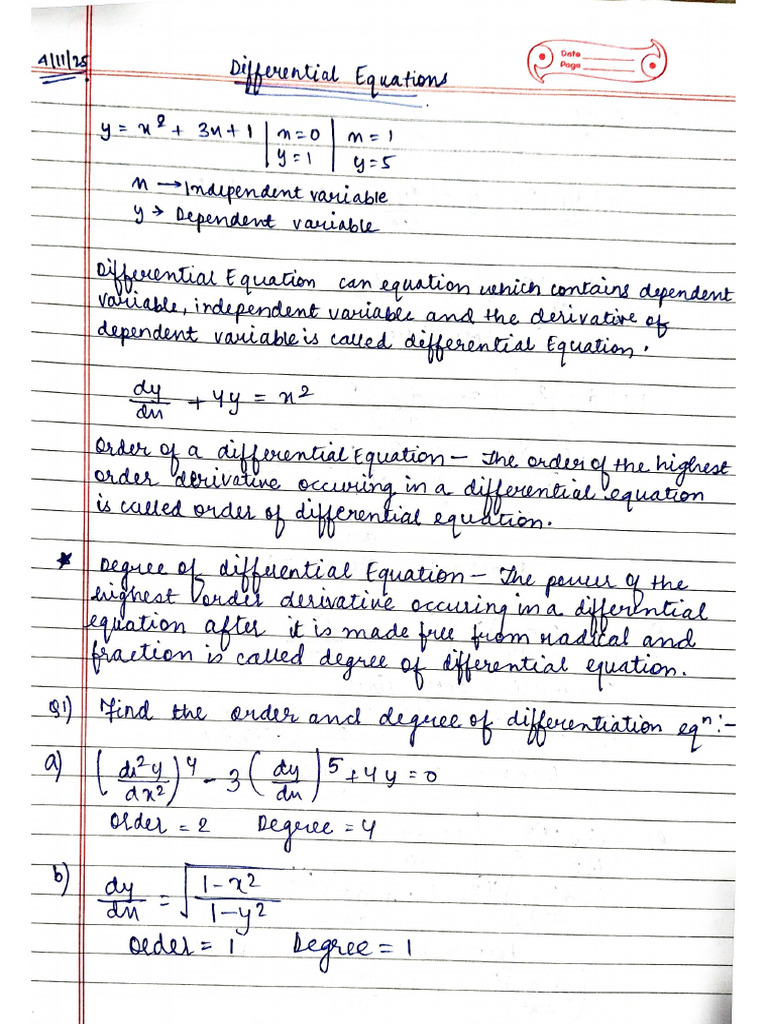 4/11/25
Differential Equations
Date
Page
y = x² + 3x + 1 | x=0 | x=1
y=1 | y=5
x → Independent variable
y → Dependent variable
Differential Equation can equation which contains dependent
variable, independent variable and the derivative of
dependent variable is called differential Equation.
dy/dx + 4y = x²
Order of a differential Equation – The order of the highest
order derivative occuring in a differential equation
is called order of differential equation.
* Degree of differential Equation – The power of the
highest order derivative occuring in a differential
equation after it is made free from radical and
fraction is called degree of differential equation.
Q1) Find the order and degree of differentiation eqⁿ :-
a) (d²y/dx²)⁴ - 3(dy/dx)⁵ + 4y = 0
Order = 2 Degree = 4
b) dy/dx = √((1-x²)/(1-y²))
Order = 1 Degree = 1